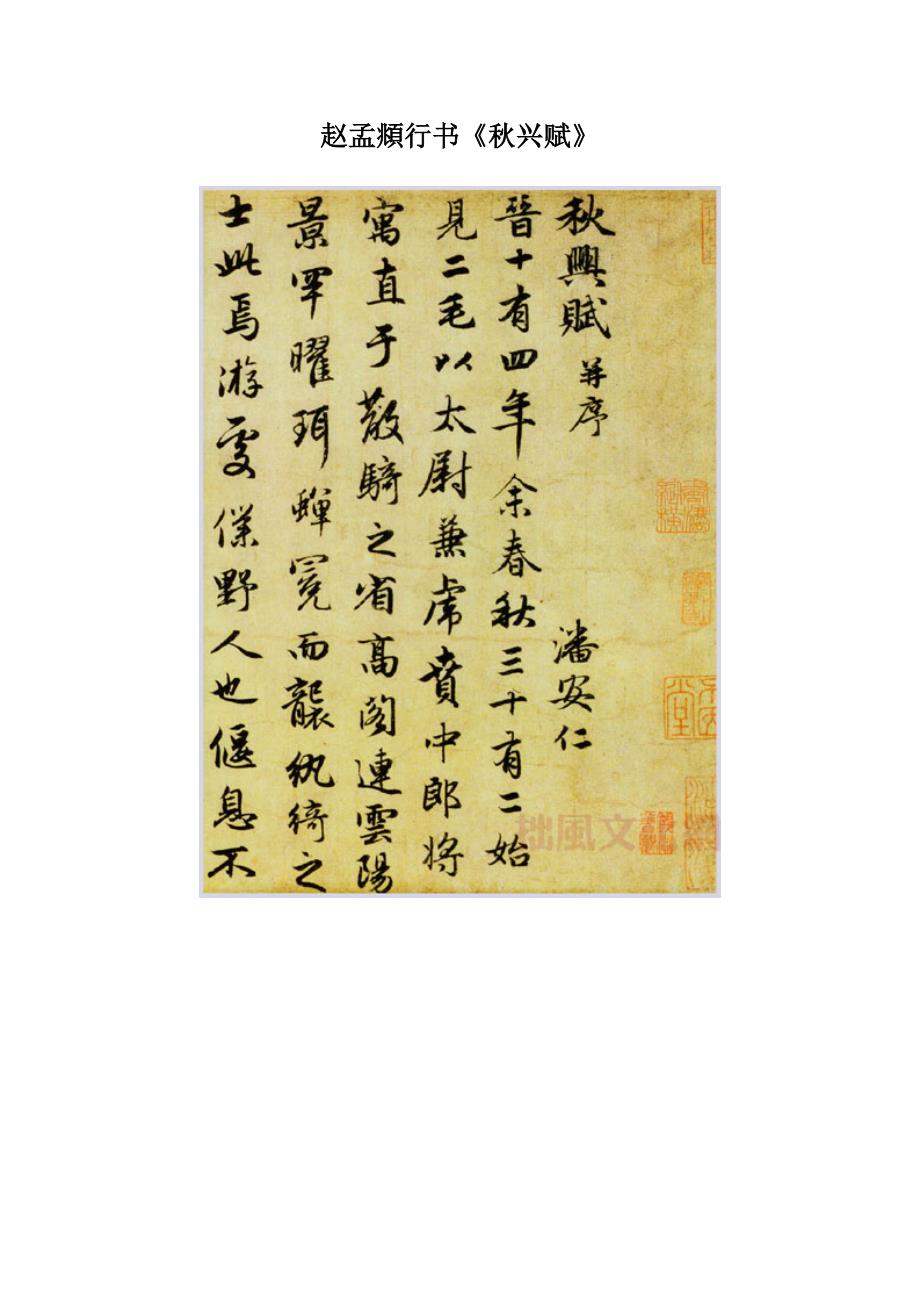 赵孟頫行书《秋兴赋》
秋興賦 并序 潘安仁
晉十有四年余春秋三十有二始
見二毛以太尉兼虎賁中郎將
寓直于散騎之省高閣連雲陽
景罕曜珥蟬冕而襲紈綺之
士此焉游處僕野人也偃息不
拙風文化網